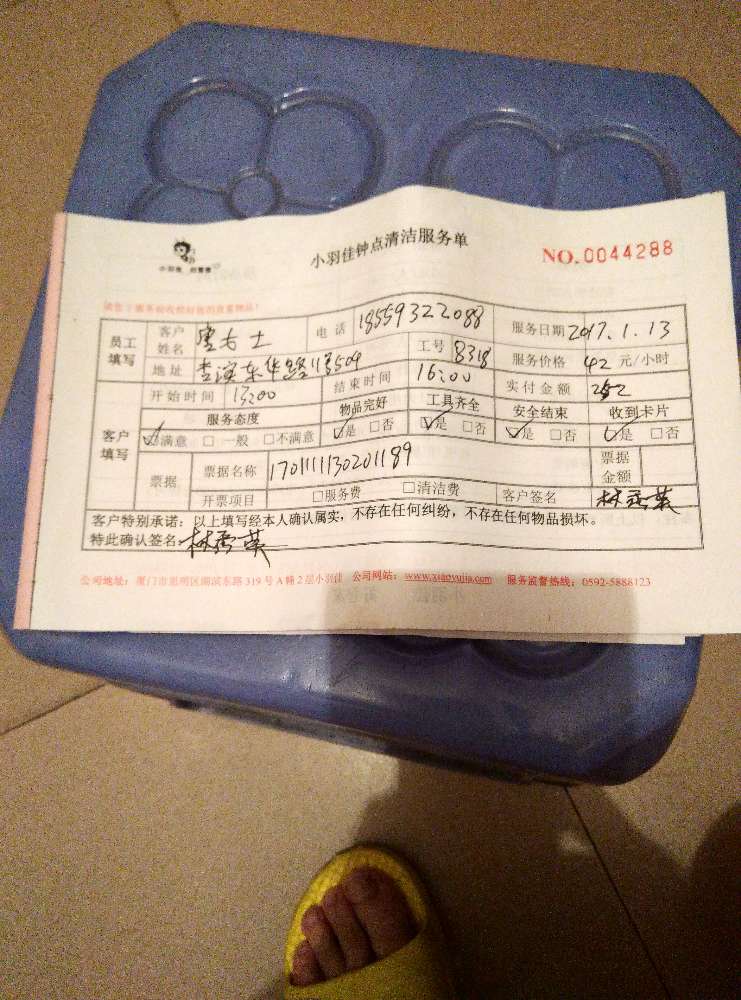 小羽佳钟点清洁服务单
NO.0044288
员工填写 客户姓名 女士 电话 18559322088 服务日期 2017.1.13
地址 东华路11号509 工号 8318 服务价格 42 元/小时
开始时间 13:00 结束时间 16:00 实付金额 252
客户填写 服务态度 物品完好 工具齐全 安全结束 收到卡片
☑满意 □一般 □不满意 ☑是 □否 ☑是 □否 ☑是 □否 ☑是 □否
票据 票据名称 1701111130201189 票据金额
开票项目 □服务费 □清洁费 客户签名 林秀英
客户特别承诺:以上填写经本人确认属实,不存在任何纠纷,不存在任何物品损坏。
特此确认签名: 林秀英
公司地址:厦门市思明区湖滨东路319号A幢2层小羽佳 公司网站:www.xiaoyujia.com 服务监督热线:0592-5888123